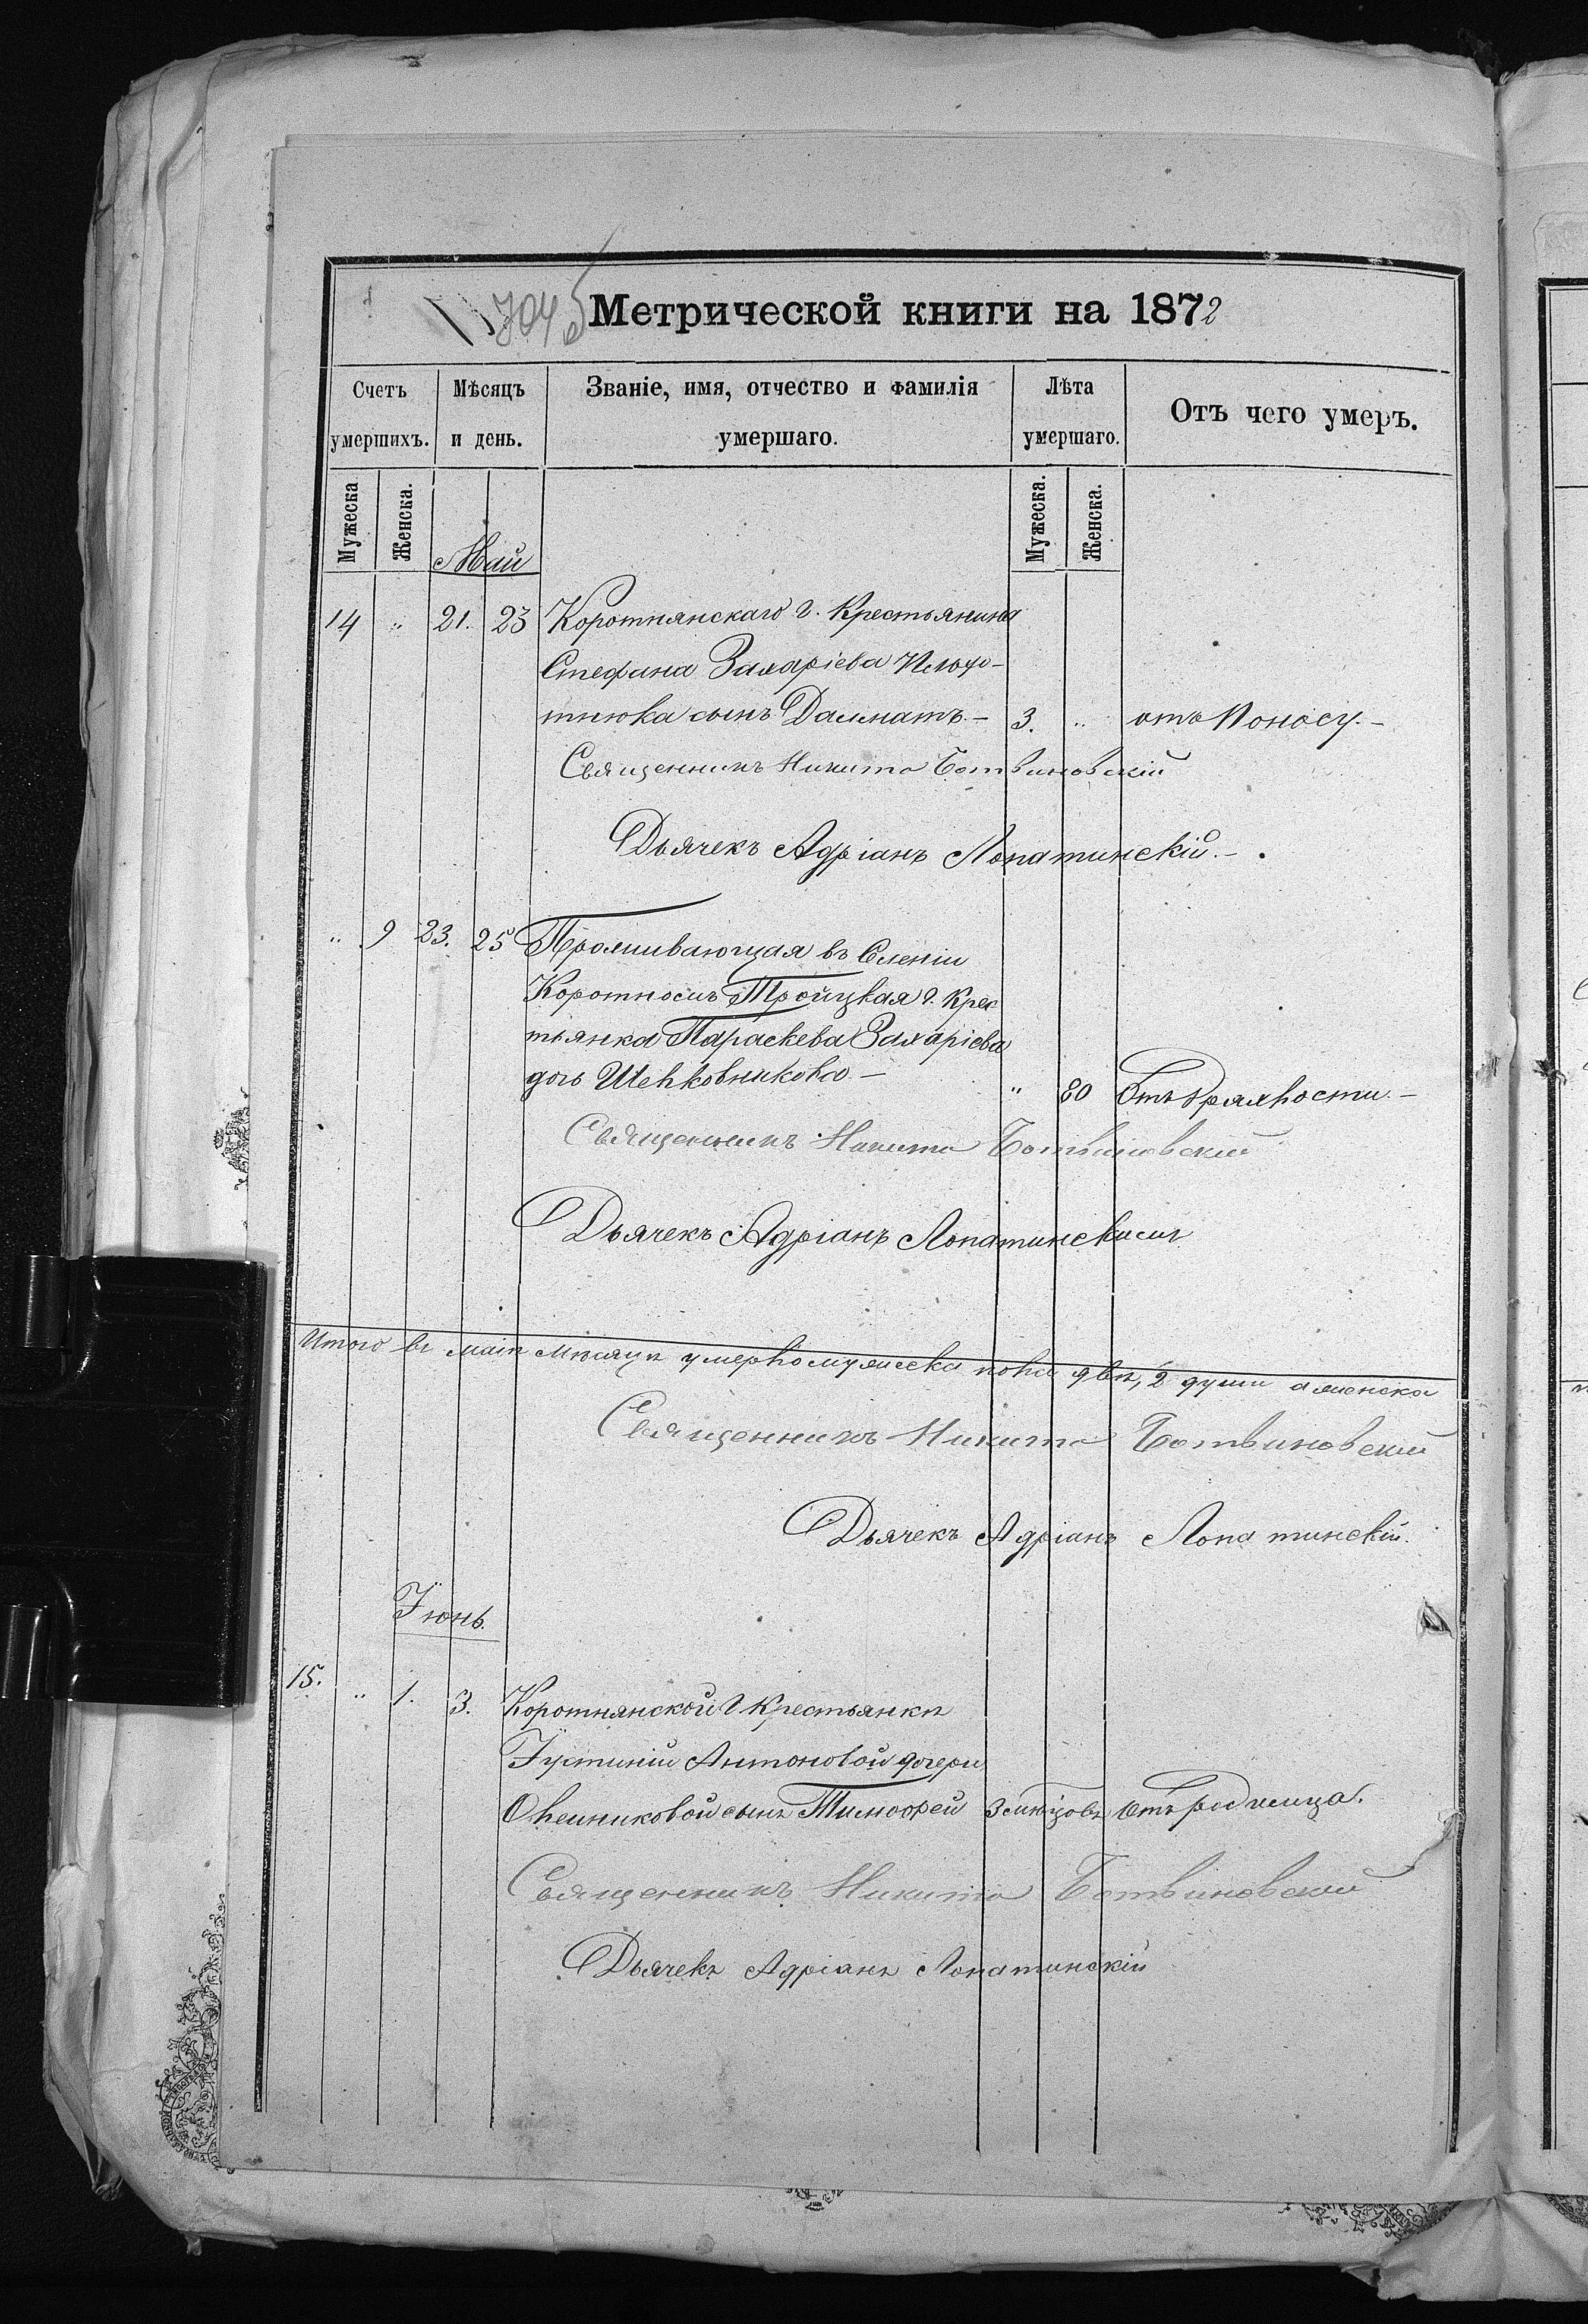 Метрической книги на 1872
Счетъ умершихъ.
Мѣсяцъ и день.
Званіе, имя, отчество и фамилія умершаго.
Лѣта умершаго.
Отъ чего умеръ.
Мужеска Женска. Мужеска. Женска.
Май
14 „ 21. 23 Коротнянскаго г. Крестьянина
Стефана Захаріева
тнюка сынъ Далматъ.– 3. „ отъ Поносу.–
Священникъ Никита Ботвиновскій
Дьячекъ Адріанъ Лопатинскій.–
„ 9 23. 25 Проживающая въ Селеніи
Коротномъ Троицкая г. Крес
тьянка Параскева Захаріева
дочь – „ 80 Отъ Дряхлости.–
Священникъ Никита Ботвиновскій
Дьячекъ Адріанъ Лопатинскій
Итого въ маѣ мѣсяцѣ умерло мужеска пола двѣ, 2 души а женска
Священникъ Никита Ботвиновскій
Дьячекъ Адріанъ Лопатинскій.
Іюнь.
15. „ 1. 3. Коротнянской г Крестьянки
Іустиніи Антоновой дочери
сынъ Тимофей 3 Отъ родимца.
Священникъ Никита Ботвиновскій
Дьячекъ Адріанъ Лопатинскій